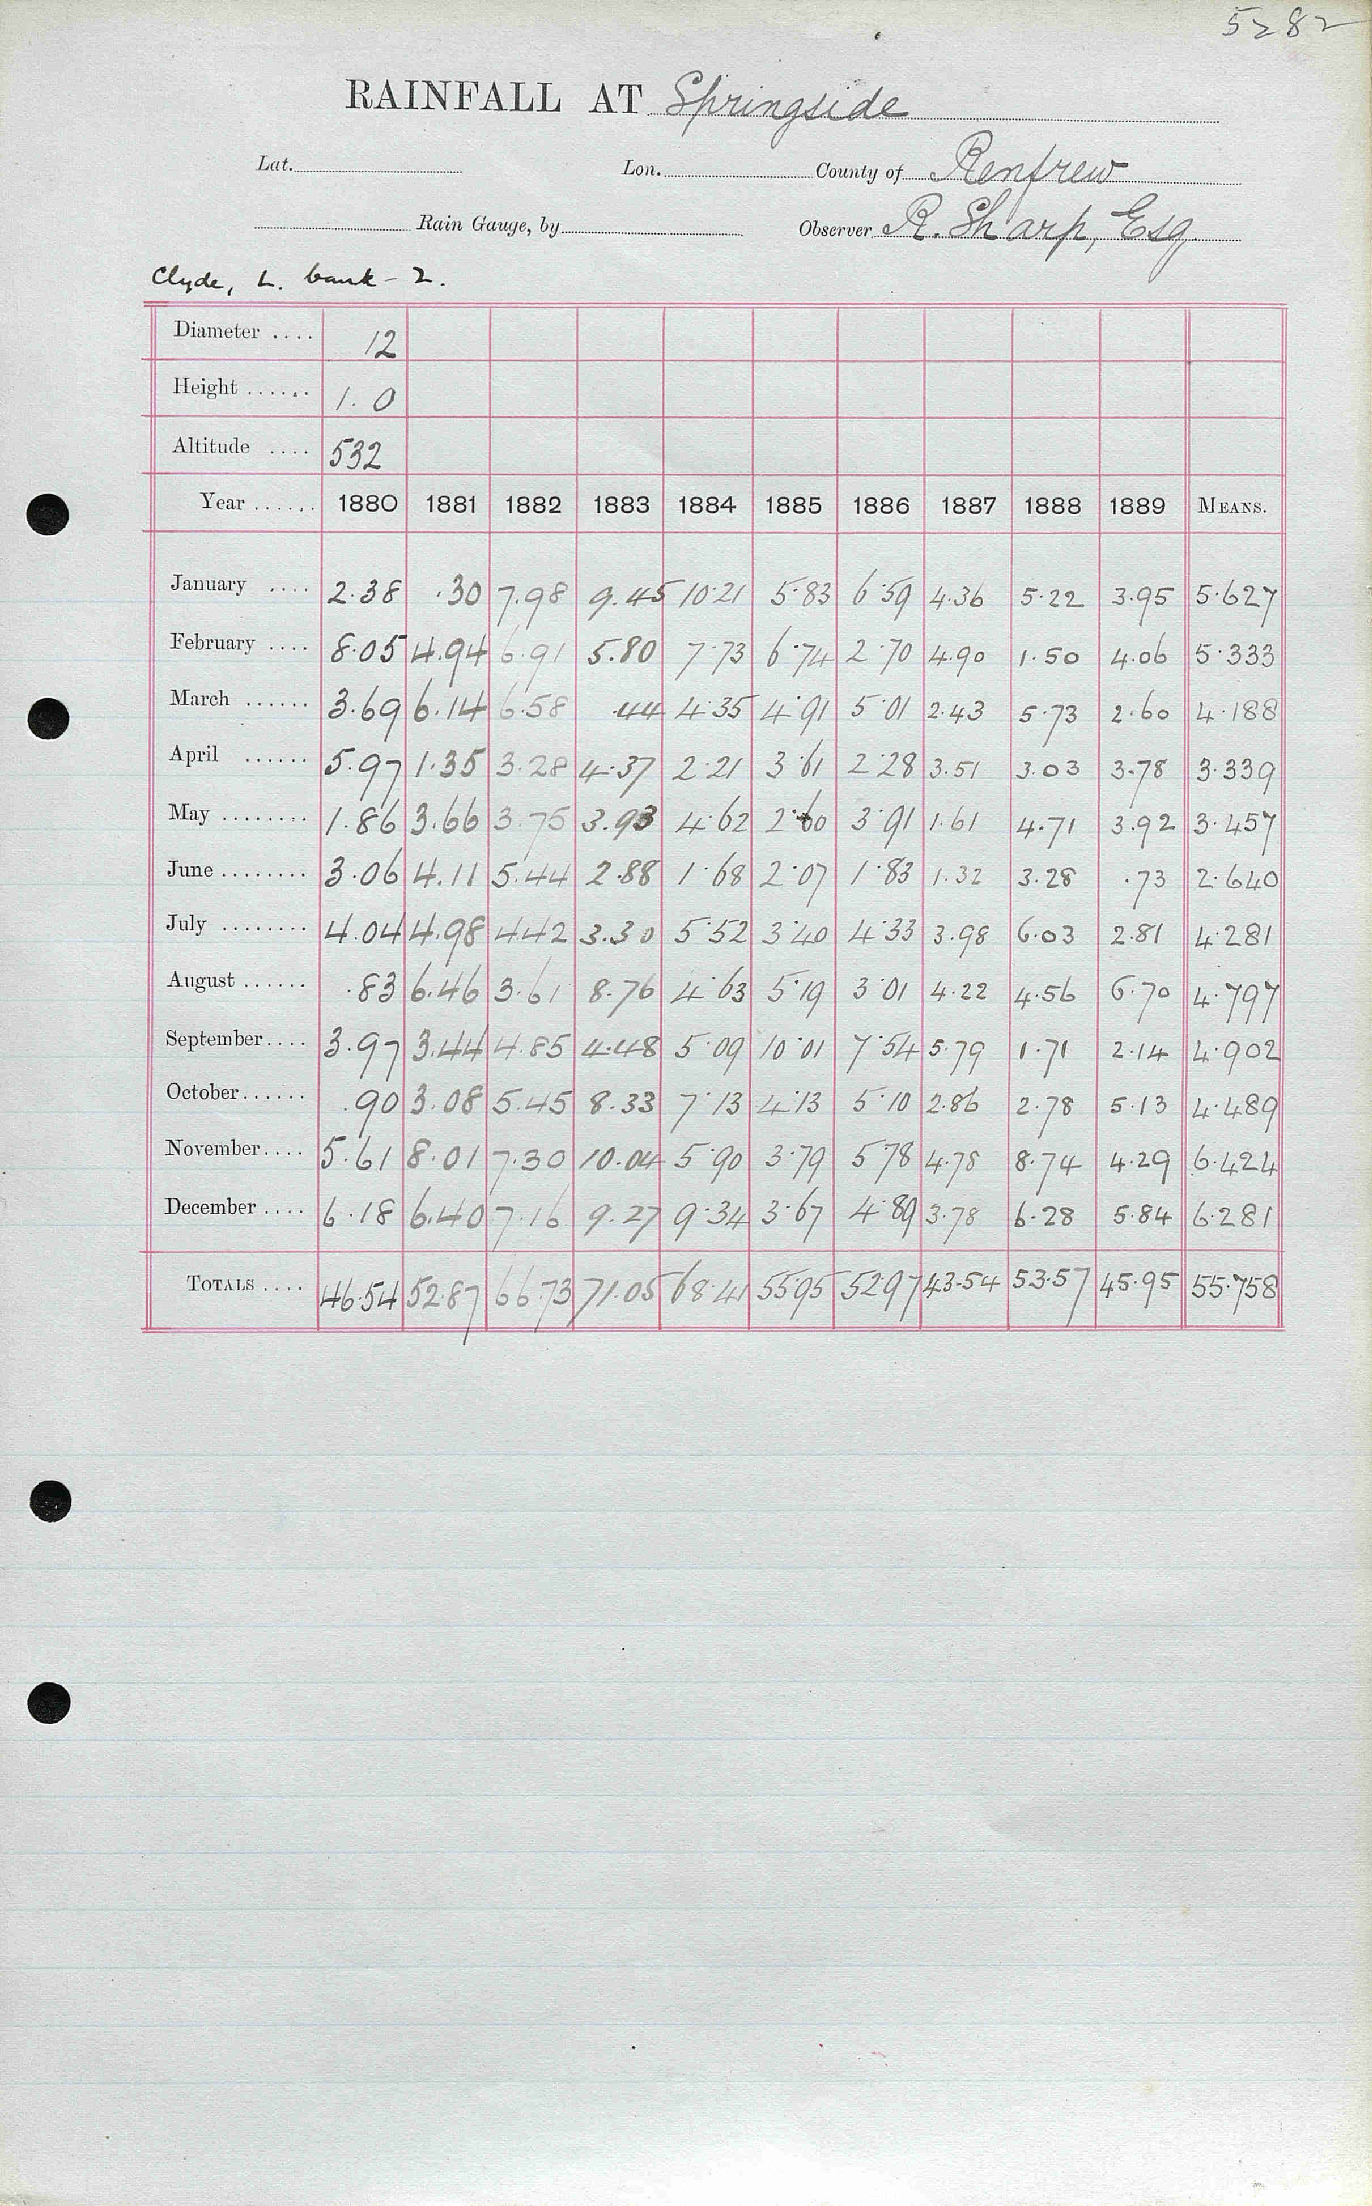 5282
RAINFALL AT Springside
Lat. Lon. County of Renfrew
Rain Gauge, by Observer R. Sharp, Esq
Clyde, L. bank - 2.
Diameter .... 12
Height ...... 1.0
Altitude .... 532
Year ...... 1880 1881 1882 1883 1884 1885 1886 1887 1888 1889 MEANS.
January .... 2.38 .30 7.98 9.45 10.21 5.83 6.59 4.36 5.22 3.95 5.627
February .... 8.05 4.94 6.91 5.80 7.73 6.74 2.70 4.90 1.50 4.06 5.333
March ...... 3.69 6.14 6.58 .44 4.35 4.91 5.01 2.43 5.73 2.60 4.188
April ...... 5.97 1.35 3.28 4.37 2.21 3.61 2.28 3.51 3.03 3.78 3.339
May ........ 1.86 3.66 3.75 3.93 4.62 2.60 3.91 1.61 4.71 3.92 3.457
June ........ 3.06 4.11 5.44 2.88 1.68 2.07 1.83 1.32 3.28 .73 2.640
July ........ 4.04 4.98 4.42 3.30 5.52 3.40 4.33 3.98 6.03 2.81 4.281
August ...... .83 6.46 3.61 8.76 4.63 5.19 3.01 4.22 4.56 6.70 4.797
September .... 3.97 3.44 4.85 4.48 5.09 10.01 7.54 5.79 1.71 2.14 4.902
October ...... .90 3.08 5.45 8.33 7.13 4.13 5.10 2.86 2.78 5.13 4.489
November .... 5.61 8.01 7.30 10.04 5.90 3.79 5.78 4.78 8.74 4.29 6.424
December .... 6.18 6.40 7.16 9.27 9.34 3.67 4.89 3.78 6.28 5.84 6.281
TOTALS .... 46.54 52.87 66.73 71.05 68.41 55.95 52.97 43.54 53.57 45.95 55.758